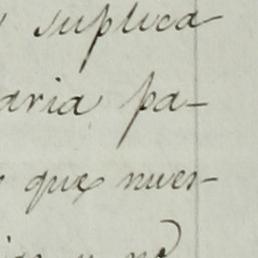 suplica-
aria pa-
que nues-
y no